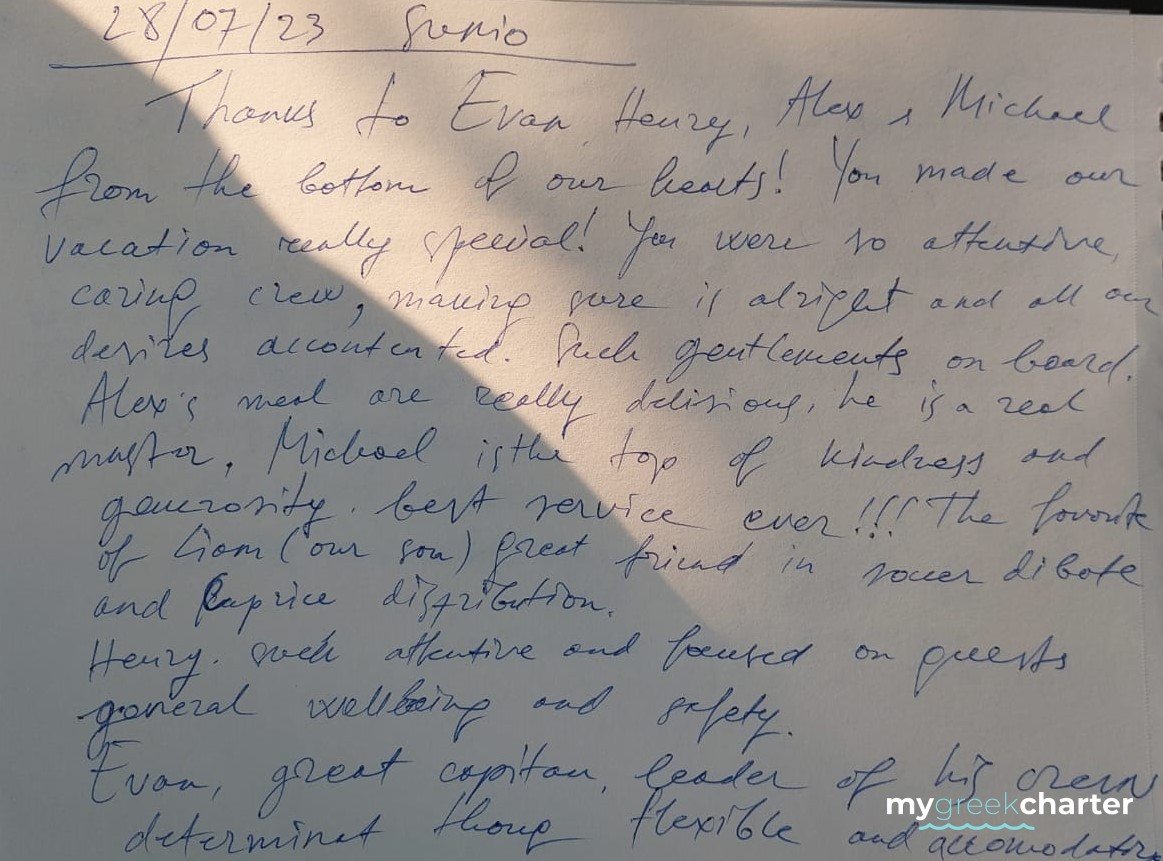 28/07/23
Thanks to Evan, Henry, Alex & Michael
from the bottom of our hearts! You made our
vacation really special! You were so attentive,
caring crew, making sure is alright and all our
desires accontented. Such gentlements on board.
Alex's meal are really delisious, he is a real
mastor. Michael is the top of kindness and
generosity. best service ever!!! The favorite
of Liam (our son) great friend in soccer dibate
and Caprice distribution.
Henry. such attentive and focused on guests
general wellbeing and safety.
Evan, great capitan, leader of his crew
determinat thoug flexible and accomodating
mygreekcharter